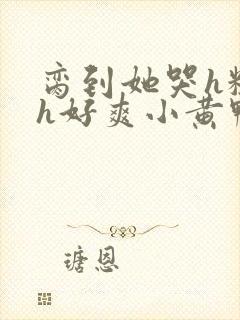 弯到她哭h粗
h好爽小黄鸭
瑭恩